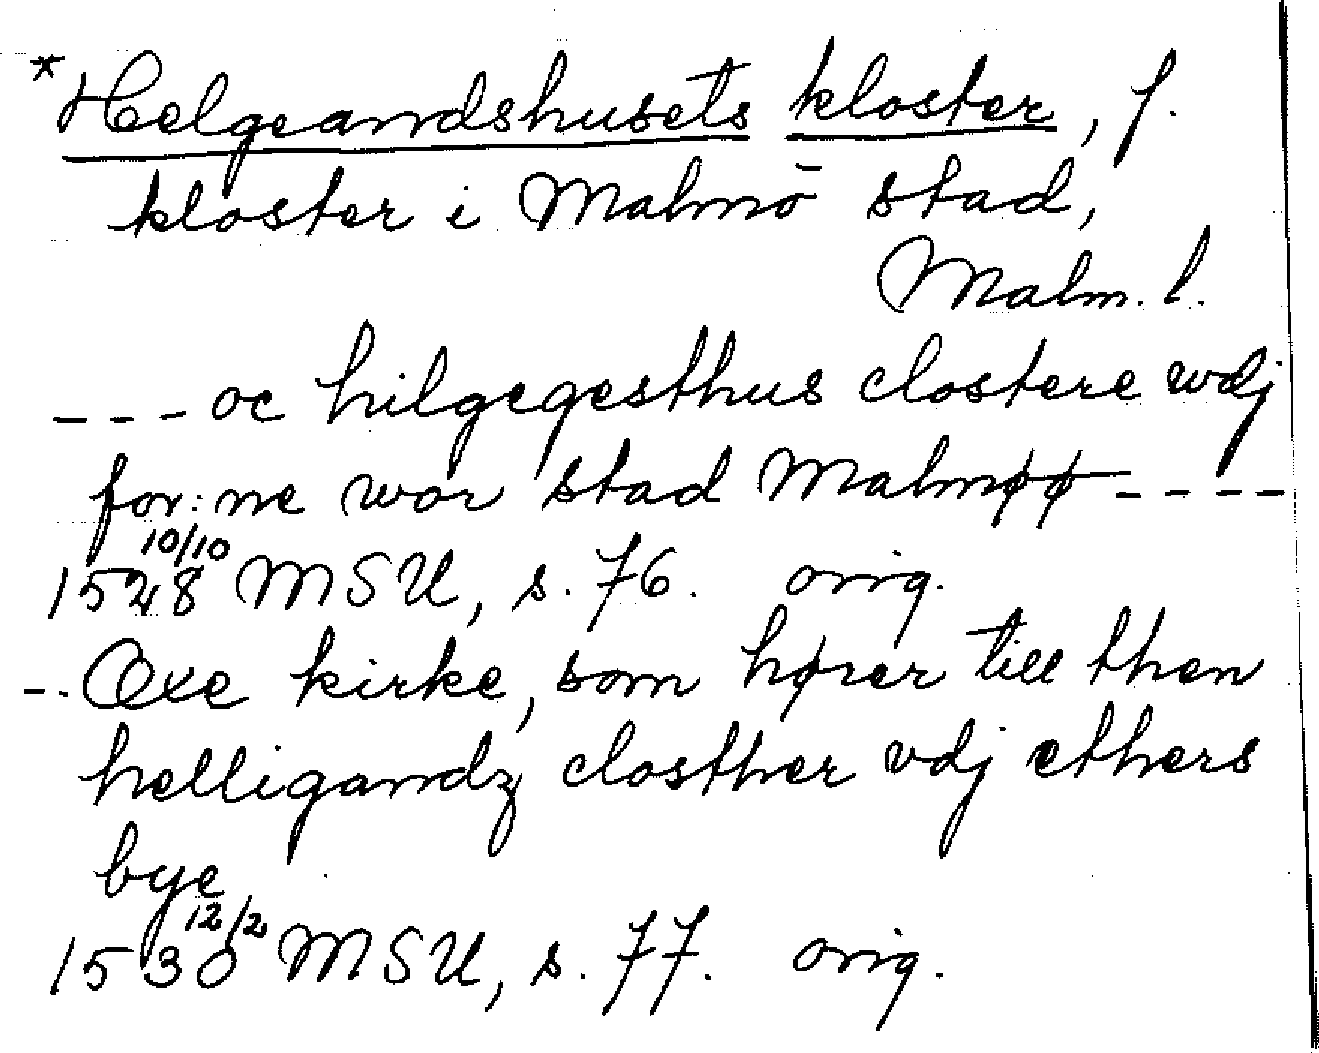 *Helgeandshusets kloster, f.
kloster i Malmö stad,
Malm. l.
--- oc hilgegesthus clostere wdj
for: ne wor stad Malmøø ----
10/10
1528 MSU, s. 76. orig.
-. Oxe kirke, som hører till then
helligandz closther vdj ethers
bye
12/2
1530 MSU, s. 77. orig.